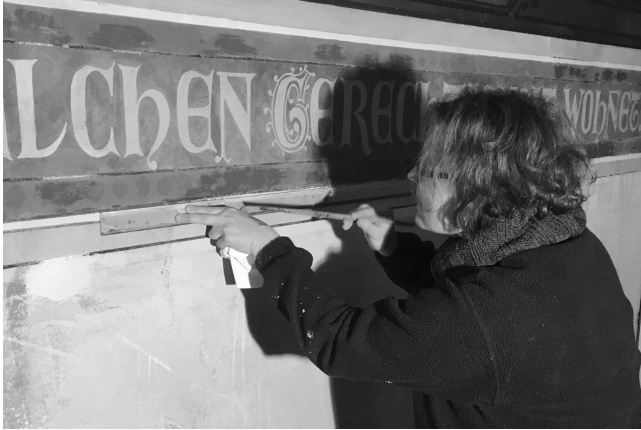 LCHEN GERECH WOHNE